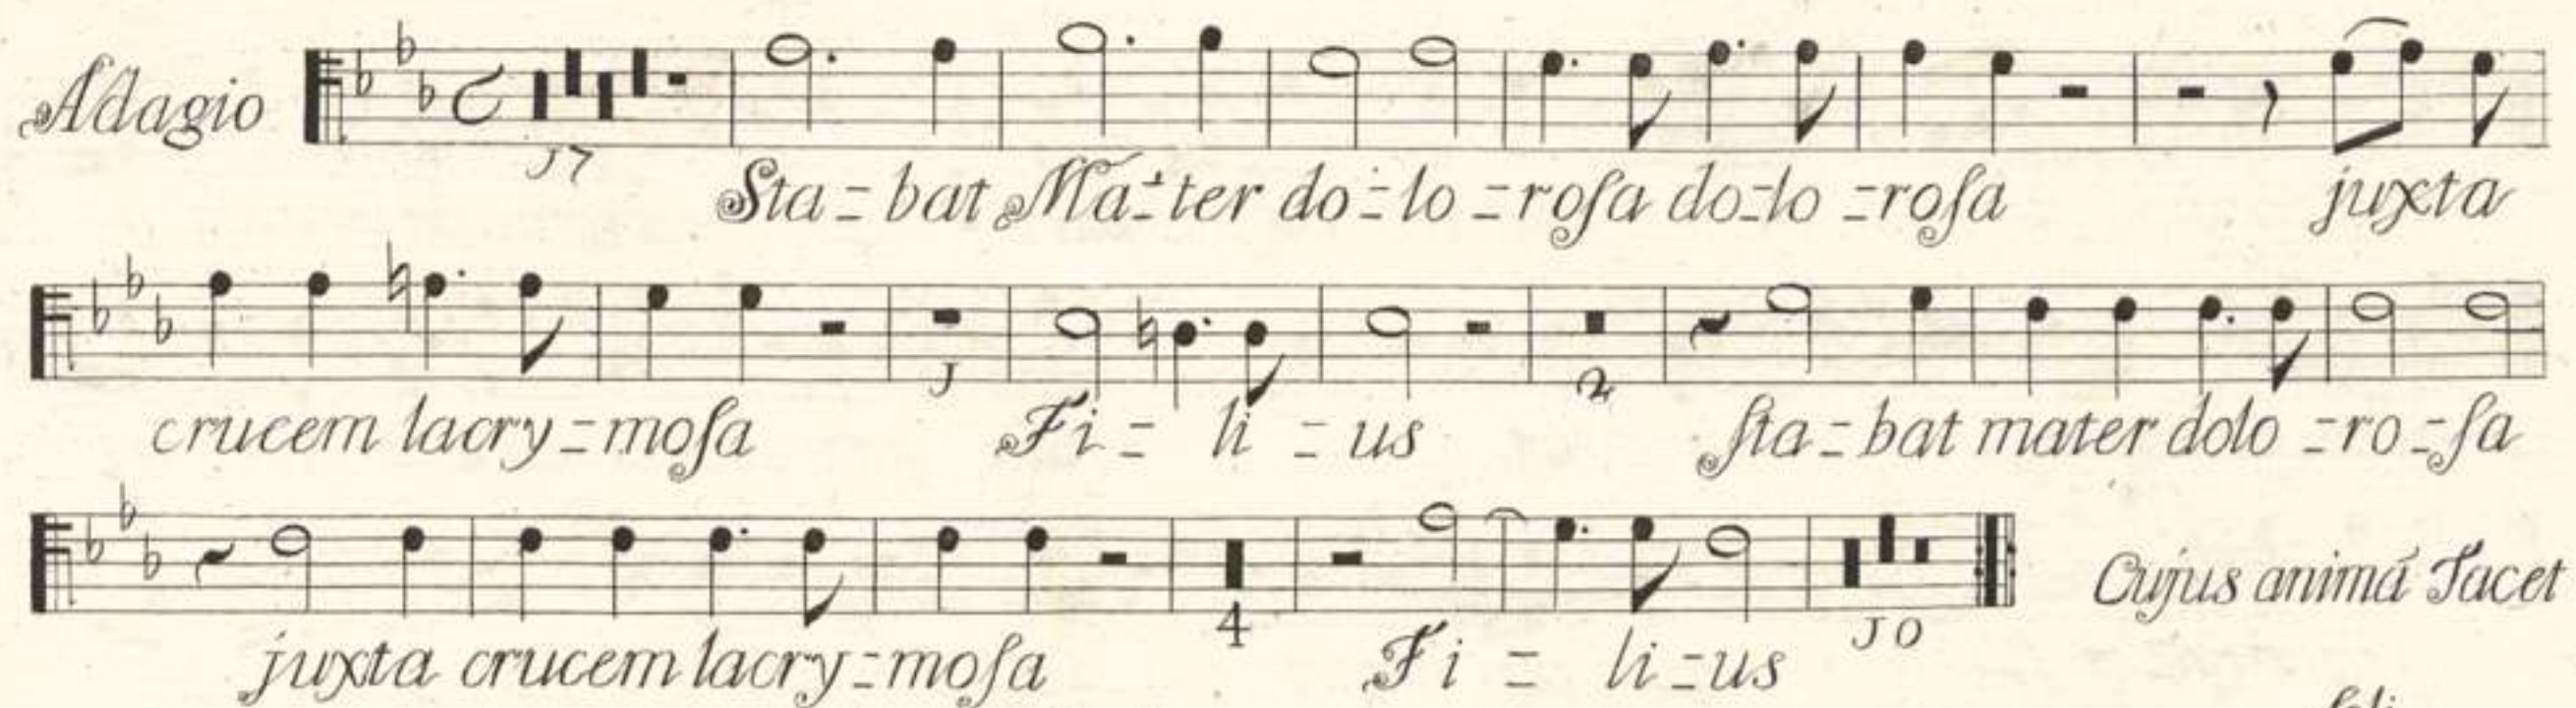 Adagio
J7
Sta - bat Ma - ter do - lo - roſa do - lo - roſa juxta
J 2
crucem lacry - moſa Fi - li - us ſta - bat mater dolo - ro - ſa
Cujus animá Tacet
4 J0
juxta crucem lacry - moſa Fi - li - us